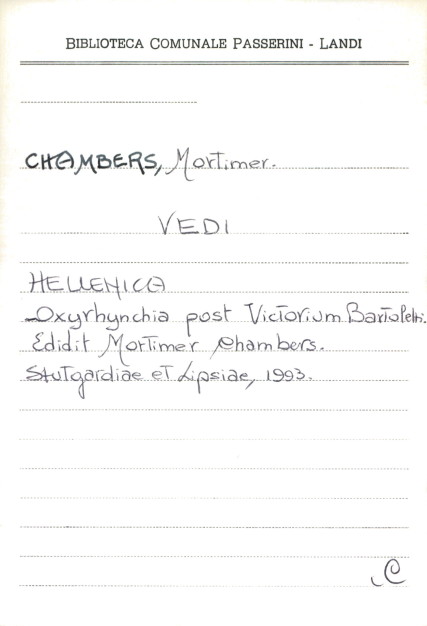 BIBLIOTECA COMUNALE PASSERINI - LANDI
CHAMBERS, Mortimer.
VEDI
HELLENICA
Oxyrhynchia post Victorium Bartoletti.
Edidit Mortimer Chambers.
Stutgardiae et Lipsiae, 1993.
C